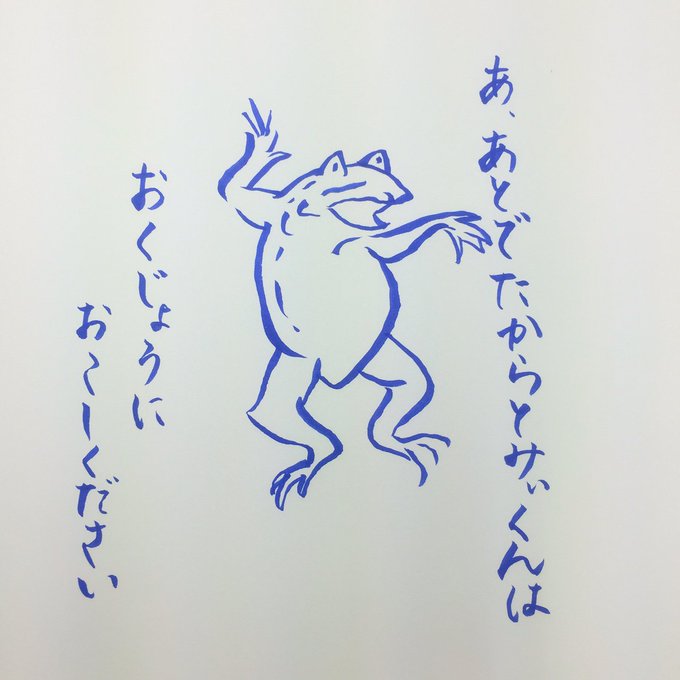 あ、あとでたからとみぃくんは
おくじょうに
おこしください